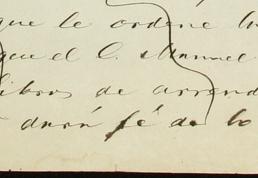 que le ordene
que el C. Manuel
libros de arrend
dará fé de lo